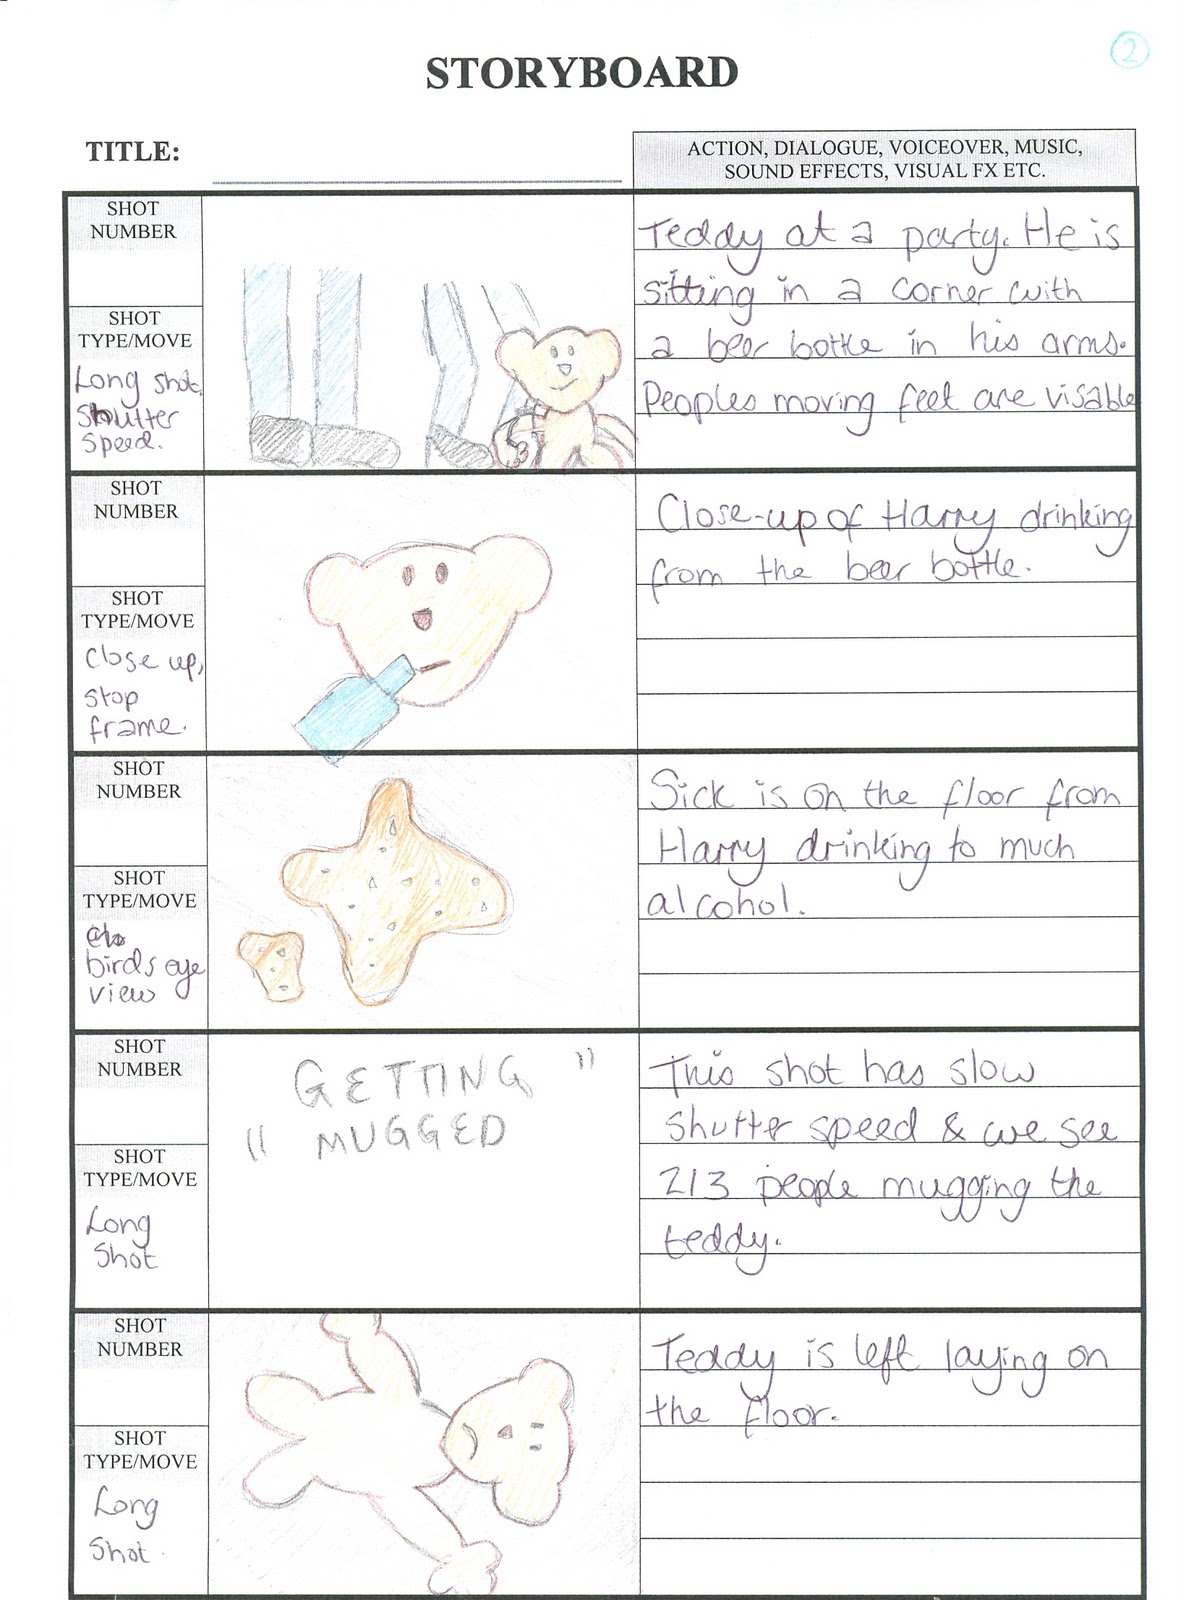 2
STORYBOARD
TITLE:
ACTION, DIALOGUE, VOICEOVER, MUSIC,
SOUND EFFECTS, VISUAL FX ETC.
SHOT
NUMBER
SHOT
TYPE/MOVE
Long shot,
Shutter
speed.
Teddy at a party. He is
sitting in a corner with
a beer bottle in his arms.
Peoples moving feet are visable
SHOT
NUMBER
SHOT
TYPE/MOVE
Close up,
stop
frame.
Close-up of Harry drinking
from the beer bottle.
SHOT
NUMBER
SHOT
TYPE/MOVE
birds eye
view
Sick is on the floor from
Harry drinking to much
alcohol.
SHOT
NUMBER
SHOT
TYPE/MOVE
Long
Shot
GETTING "
" MUGGED
This shot has slow
shutter speed & we see
2/3 people mugging the
teddy.
SHOT
NUMBER
SHOT
TYPE/MOVE
Long
Shot.
Teddy is left laying on
the floor.